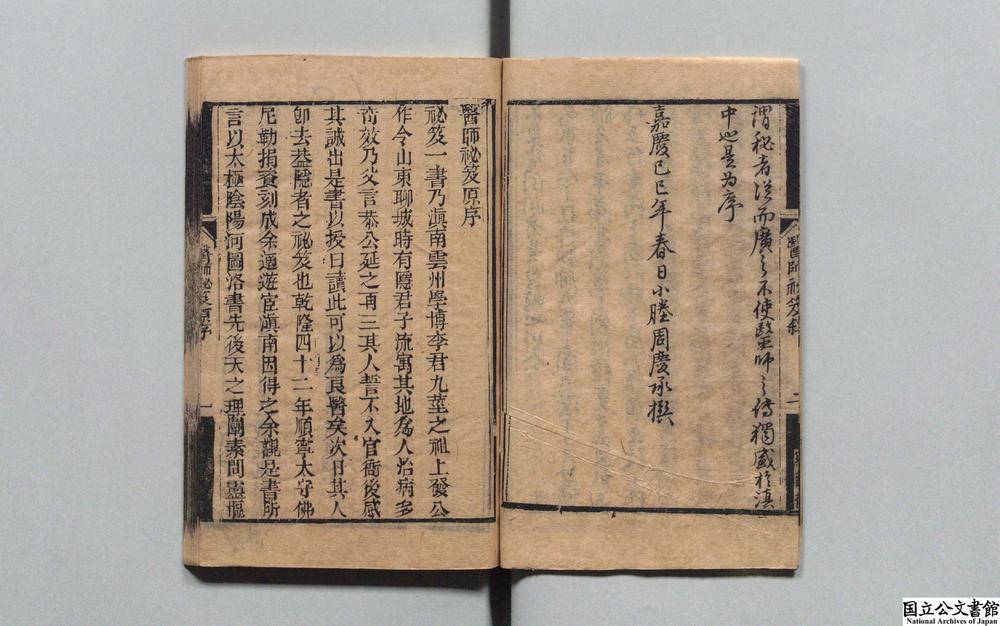 謂秘者從而廣之不使醫師之傳獨盛於滇
中也是為序
嘉慶己巳年春日小塍周慶承撰
醫師秘笈敘
二
醫師祕笈原序
祕笈一書乃滇南雲州學博李君九莖之祖上發公
作令山東聊城時有隱君子流寓其地為人治病多
奇效乃父言恭公延之再三其人誓不入官衙後感
其誠出是書以授曰讀此可以為良醫矣次日其人
卽去葢隱者之祕笈也乾隆四十二年順寧太守佛
尼勒捐資刻成余適遊宦滇南因得之余觀是書所
言以太極陰陽河圖洛書先後天之理闡素問靈樞
醫師祕笈原序
一
国立公文書館
National Archives of Japan